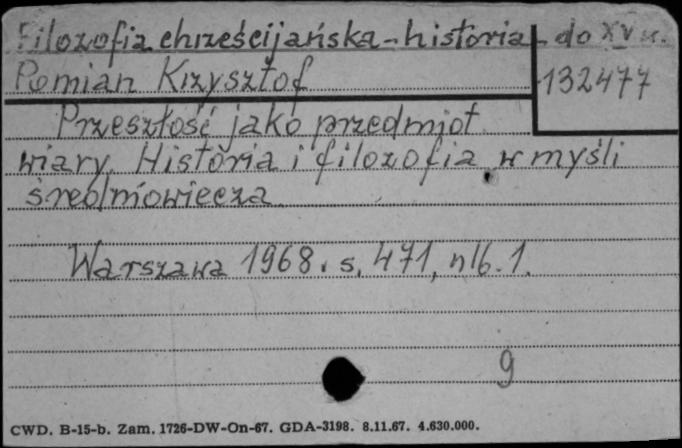 Filozofia chrześcijańska - historia - do XV w.
Pomian Krzysztof
132477
Przeszłość jako przedmiot
wiary. Historia i filozofia w myśli
średniowiecza
Warszawa 1968. s. 471, nlb. 1.
9
CWD. B-15-b. Zam. 1726-DW-On-67. GDA-3198. 8.11.67. 4.630.000.